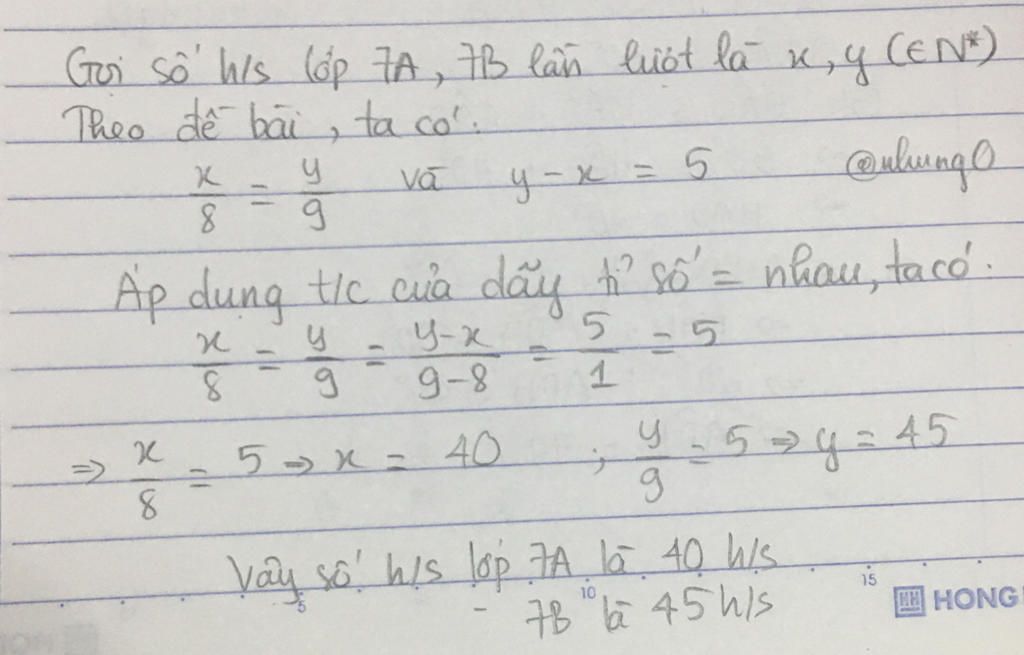 Gọi số h/s lớp 7A, 7B lần lượt là x, y (∈N*)
Theo đề bài, ta có:
x/8 = y/9 và y - x = 5 @nhungO
Áp dụng t/c của dãy tỉ số = nhau, ta có:
x/8 = y/9 = y-x/9-8 = 5/1 = 5
⇒ x/8 = 5 ⇒ x = 40 ; y/9 = 5 ⇒ y = 45
Vậy số h/s lớp 7A là 40 h/s
- 7B là 45 h/s
5 10 15 HH HONG